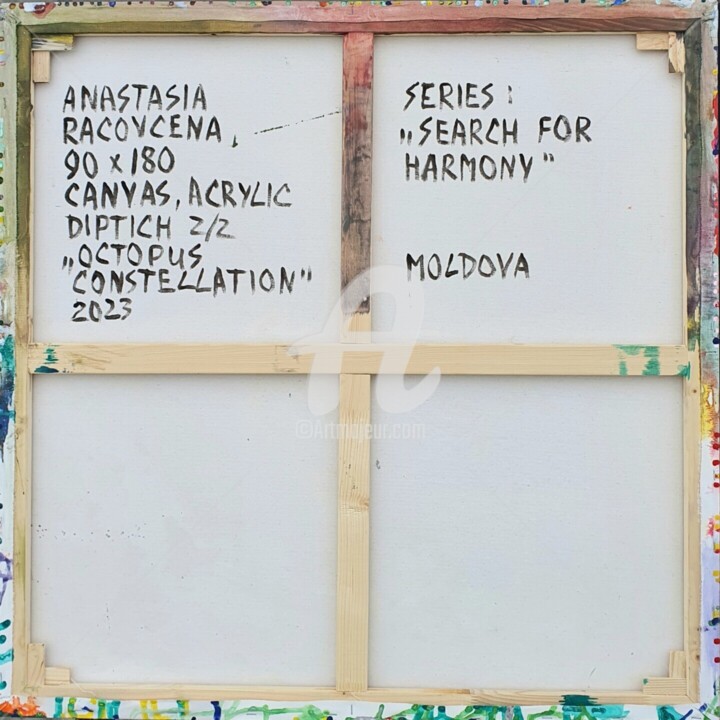 ANASTASIA
RACOVCENA,
90 x 180
CANVAS, ACRYLIC
DIPTICH 2/2
„OCTOPUS
CONSTELLATION"
2023
SERIES:
„SEARCH FOR
HARMONY"
MOLDOVA
©Artmajeur.com